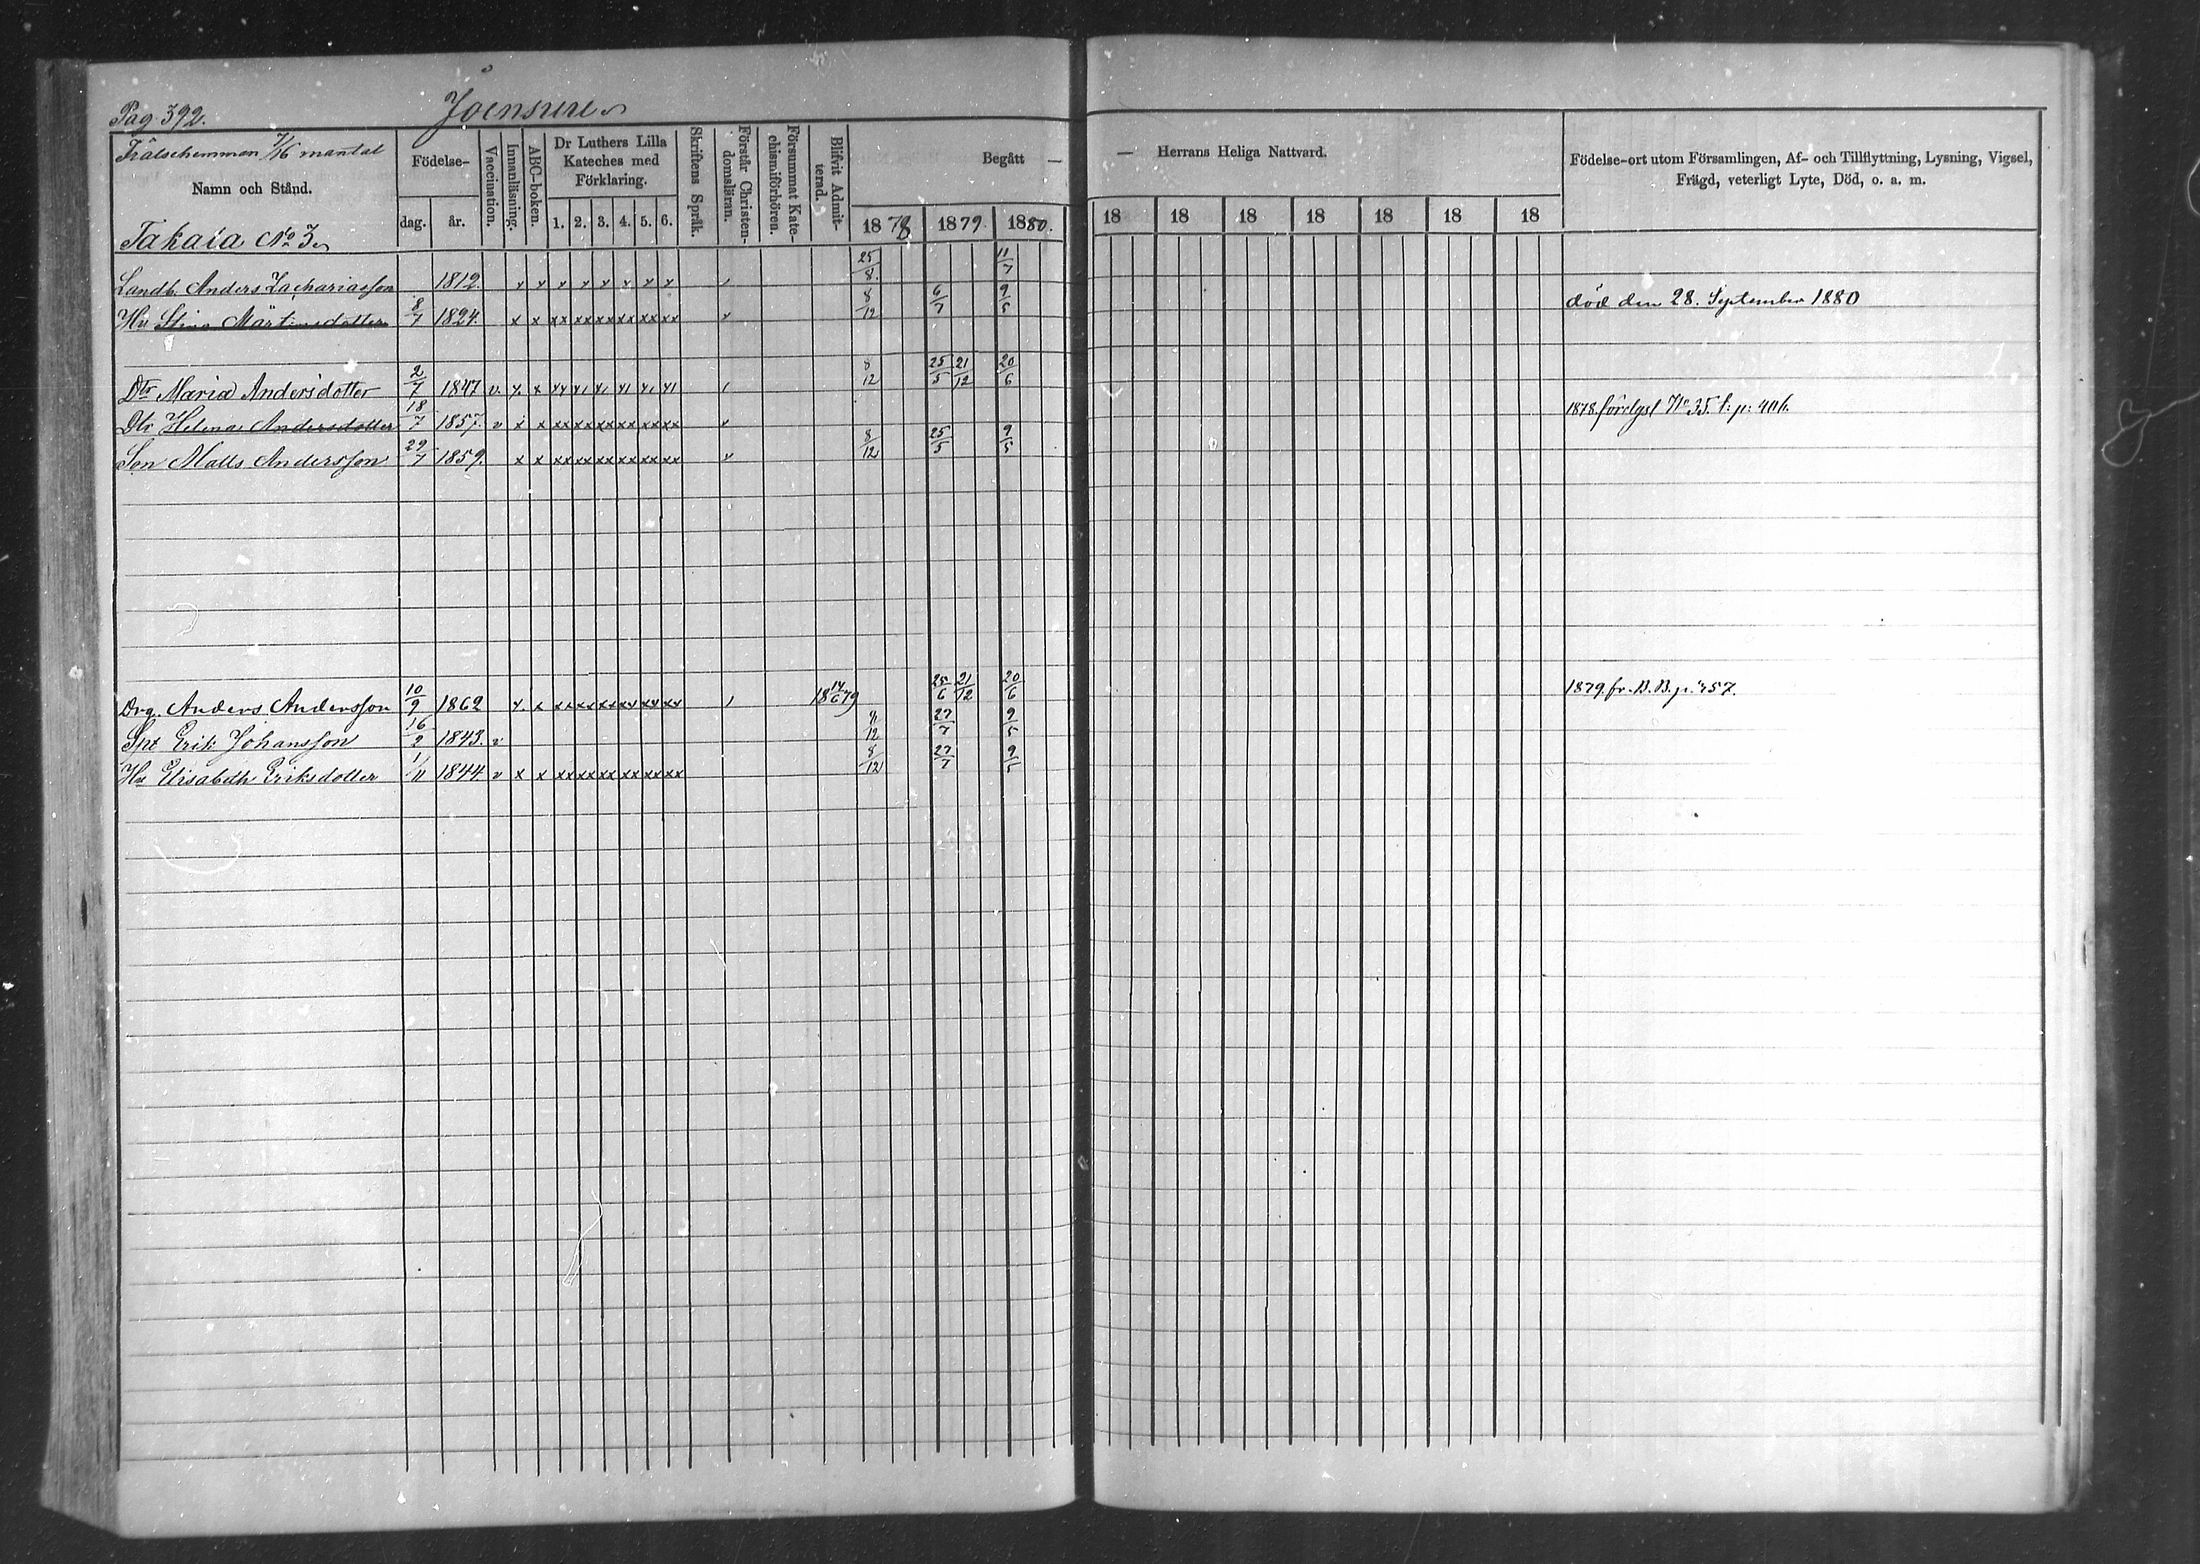 Pag. 392. Joensuu
Frälsehemman 7/16 mantal
Namn och Stånd.
Takala No 3.
Födelse-
dag. år.
Vaccination.
Innanläsning.
ABC-boken.
Dr Luthers Lilla
Kateches med
Förklaring.
1. 2. 3. 4. 5. 6.
Skriftens Språk.
Förstår Christen-
domsläran.
Försummat Kate-
chismiförhören.
Blifvit Admit-
terad.
Begått —
— Herrans Heliga Nattvard.
1878 1879 1880. 18 18 18 18 18 18 18
Födelse-ort utom Församlingen, Af- och Tillflyttning, Lysning, Vigsel,
Frägd, veterligt Lyte, Död, o. a. m.
Landb. Anders Zachariasson 1812. x x x x x x x x 25/8 11/7
Hu Stina Mårtensdotter 8/7 1824. x x xx xx xx xx xx xx 8/12 6/7 9/5 död den 28. September 1880
Dtr Maria Andersdotter 2/7 1847 v. x x 8/12 25/5 21/12 20/6
Dtr Helena Andersdotter 18/7 1857. v x x xx xx xx xx xx xx 1878. förelyst No 35. p. 406.
Son Matts Andersson 29/7 1859. x x xx xx xx xx xx xx 8/12 25/5 9/5
Drg. Anders Andersson 10/9 1862 x x xx xx xx xx xx xx 18 14/6 79 25/6 21/12 20/6 1879. fr. B. B. p. 457.
Erik Johansson 16/2 1843. v 8/12 27/7 9/5
Hu Elisabeth Eriksdotter 1/11 1844 v x x xx xx xx xx xx xx 8/12 27/7 9/5